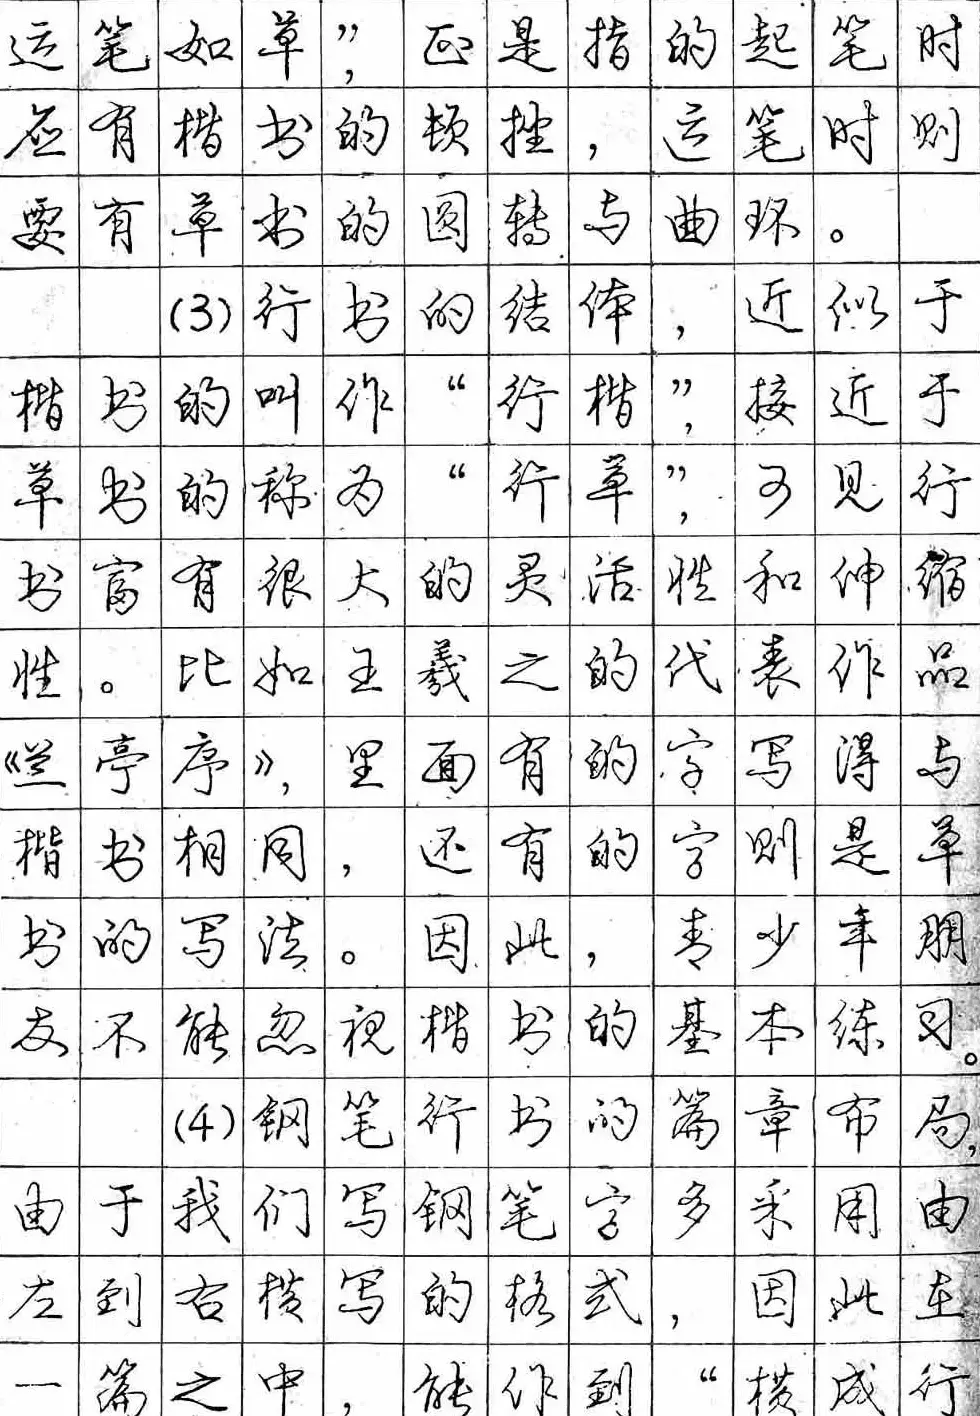 运笔如草”，正是指的起笔时
应有楷书的顿挫，运笔时则
要有草书的圆转与曲环。
(3)行书的结体，近似于
楷书的叫作“行楷”，接近于
草书的称为“行草”，可见行
书富有很大的灵活性和伸缩
性。比如王羲之的代表作品
《兰亭序》，里面有的字写得与
楷书相同，还有的字则是草
书的写法。因此，青少年朋
友不能忽视楷书的基本练习。
(4)钢笔行书的篇章布局，
由于我们写钢笔字多采用由
左到右横写的格式，因此在
一篇之中，能作到“横成行